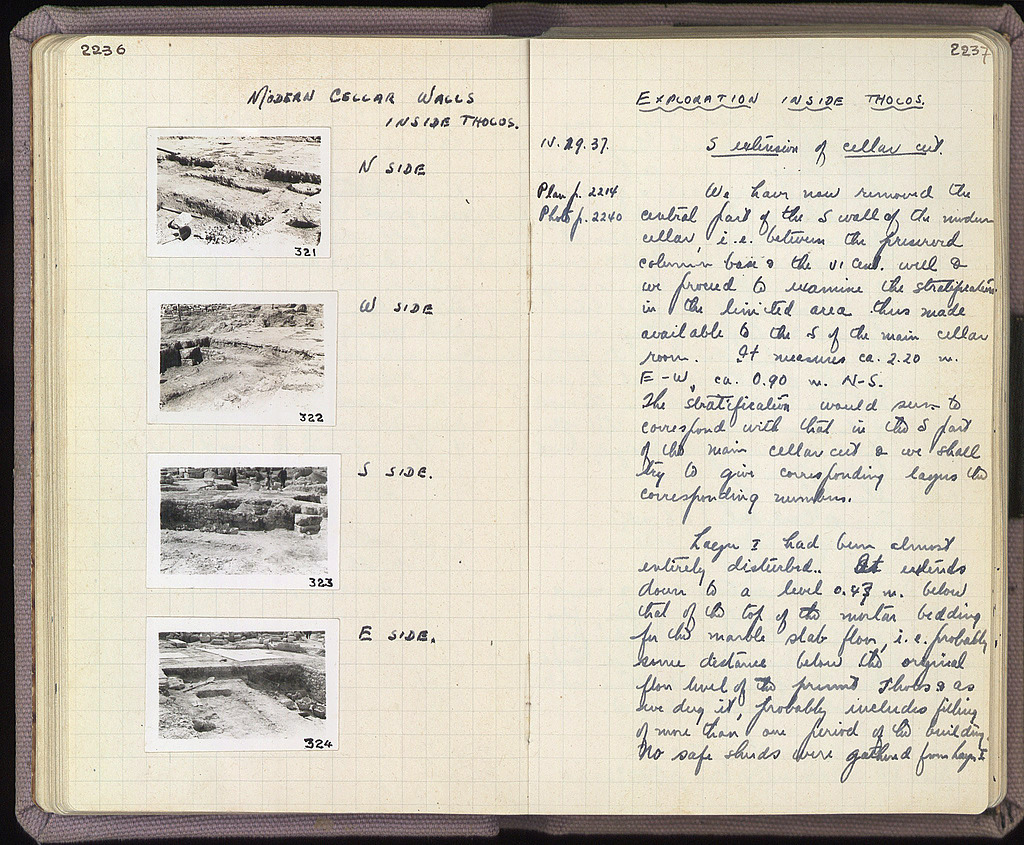 2236
MODERN CELLAR WALLS
INSIDE THOLOS.
N SIDE
321
W SIDE
322
S SIDE.
323
E SIDE.
324
2237
EXPLORATION INSIDE THOLOS.
IV.29.37.
S extension of cellar cut.
Plan p. 2214
Photo p. 2240
We have now removed the
central part of the S wall of the modern
cellar, i.e. between the preserved
column base & the VI cent. well &
we proceed to examine the stratification
in the limited area thus made
available to the S of the main cellar
room. It measures ca. 2.20 m.
E-W, ca. 0.90 m. N-S.
The stratification would seem to
correspond with that in the S part
of the main cellar cut & we shall
try to give corresponding layers the
corresponding numbers.
Layer I had been almost
entirely disturbed. It extends
down to a level 0.43 m. below
that of the top of the mortar bedding
for the marble slab floor, i.e. probably
some distance below the original
floor level of the present Tholos & as
we dug it, probably includes filling
of more than one period of the building.
No safe sherds were gathered from Layer I